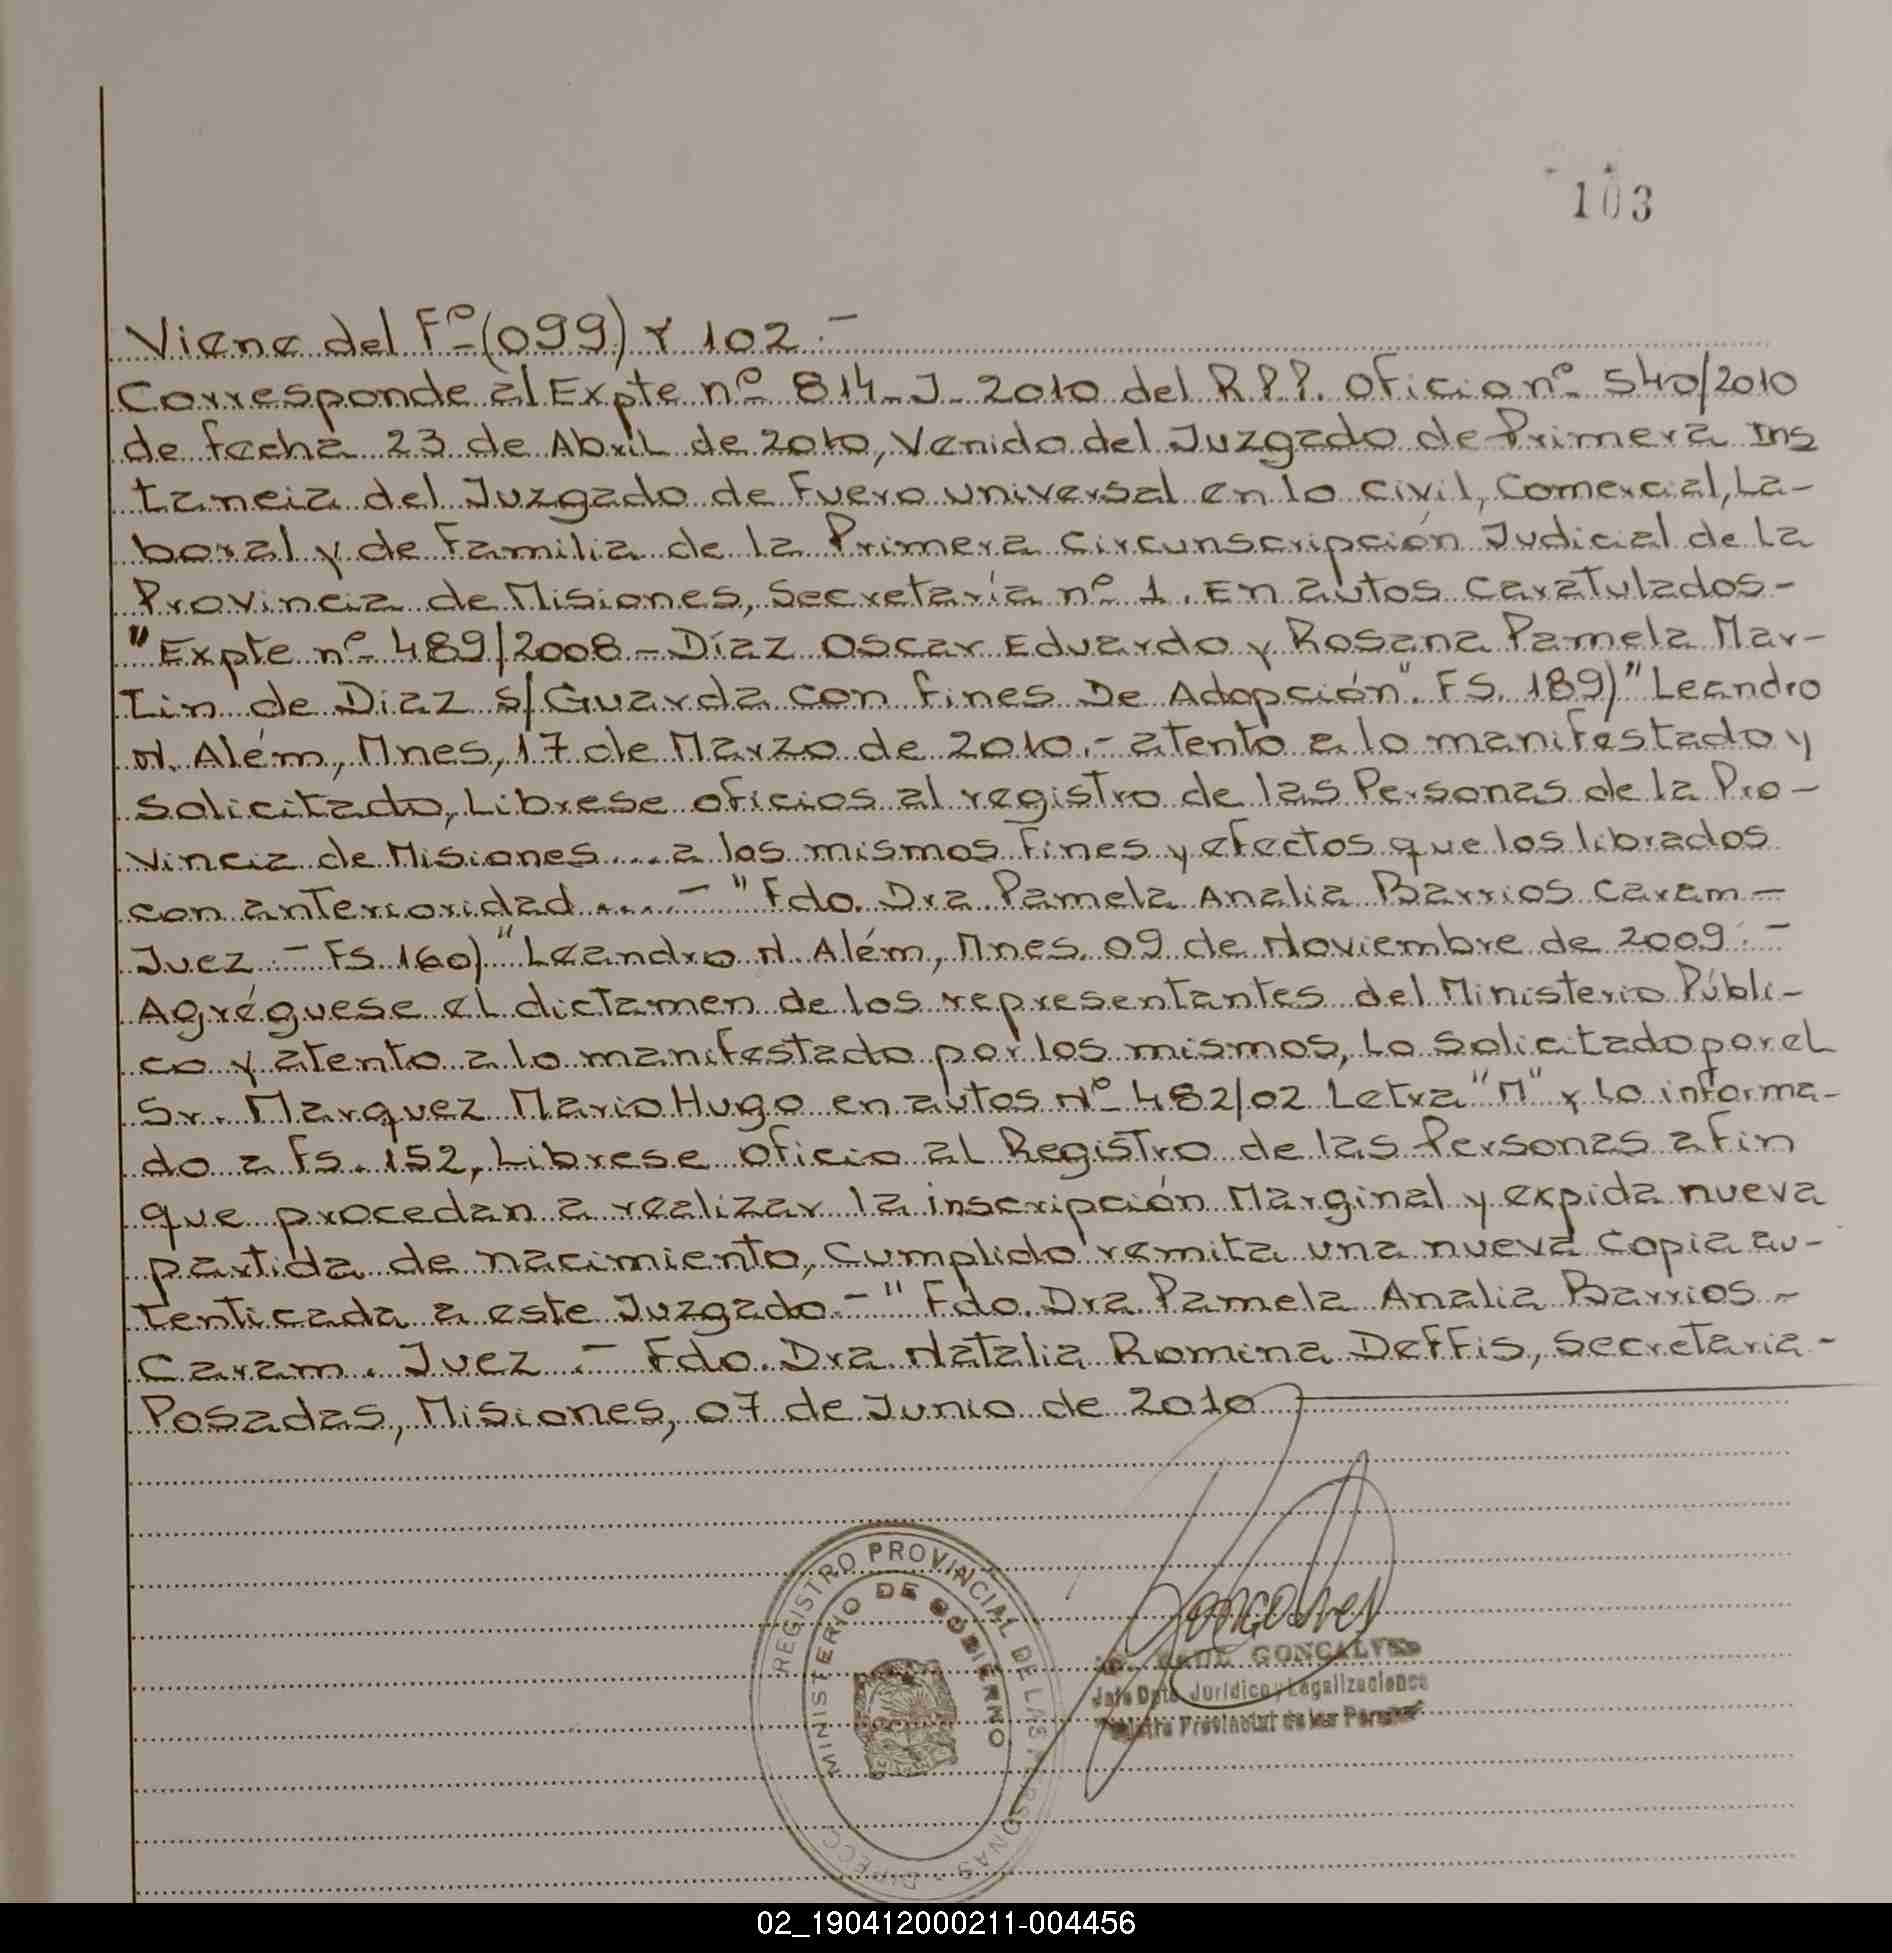 103
Viene del Fº (099) y 102.-
Corresponde al Expte nº 814-J-2010 del R.P.P. Oficio nº 540/2010
de fecha 23 de Abril de 2010, Venido del Juzgado de Primera Ins
tancia del Juzgado de Fuero universal en lo civil, Comercial, La-
boral y de Familia de la Primera Circunscripción Judicial de La
Provincia de Misiones, Secretaría nº 1. En autos Caratulados-
"Expte nº 489/2008 - Díaz Oscar Eduardo y Rosana Pamela Mar-
tin de Diaz s/ Guarda con fines De Adopción". FS. 189) "Leandro
N. Além, Mnes, 17 de Marzo de 2010.- atento a lo manifestado y
Solicitado, Librese oficios al registro de las Personas de la Pro-
vincia de Misiones.... a los mismos fines y efectos que los librados
con anterioridad....-" Fdo. Dra Pamela Analia Barrios Caram-
Juez.- FS 160) "Leandro N. Além, Mnes. 09 de Noviembre de 2009.-
Agréguese el dictamen de los representantes del Ministerio Públi-
co y atento a lo manifestado por los mismos, Lo Solicitado por el
Sr. Marquez Mario Hugo en autos Nº 482/02 Letra "M" y Lo informa-
do a fs. 152, Librese oficio al Registro de las Personas a Fin
que procedan a realizar la inscripción Marginal y expida nueva
partida de nacimiento, Cumplido remita una nueva Copia au-
tenticada a este Juzgado.-" Fdo. Dra Pamela Analia Barrios-
Caram. Juez.- Fdo. Dra Natalia Romina Deffis, Secretaria-
Posadas, Misiones, 07 de Junio de 2010
REGISTRO PROVINCIAL DE LAS PERSONAS
MINISTERIO DE GOBIERNO
Goncalves
GONCALVES
Jefe Dpto. Jurídico y Legalizaciones
Provincial de las
02_190412000211-004456